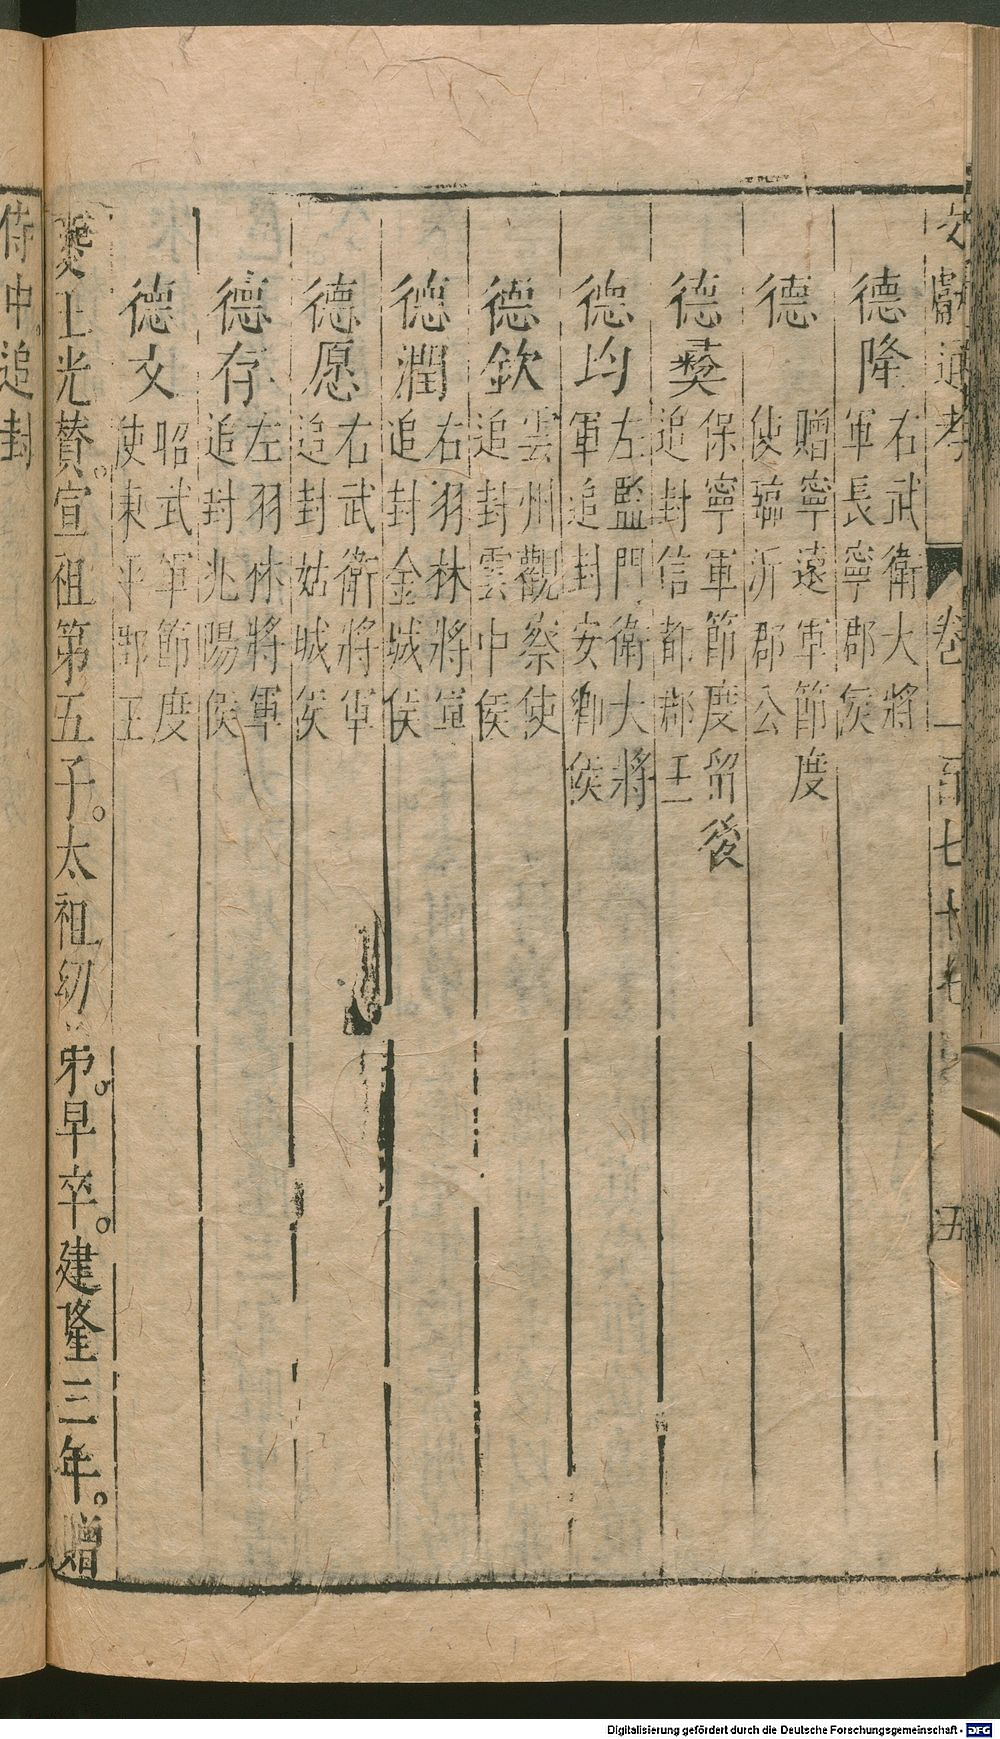 文獻通考 卷二百七十七 五
德隆 右武衛大將
軍長寧郡侯
德 贈寧遠軍節度
使臨沂郡公
德彝 保寧軍節度留後
追封信都郡王
德均 左監門衛大將
軍追封安鄉侯
德欽 雲州觀察使
追封雲中侯
德潤 右羽林將軍
追封金城侯
德愿 右武衛將軍
追封姑城侯
德存 左羽林將軍
追封兆陽侯
德文 昭武軍節度
使東平郡王
夔王光贊。宣祖第五子。太祖幼弟。早卒。建隆三年。贈
侍中。追封
Digitalisierung gefördert durch die Deutsche Forschungsgemeinschaft - DFG